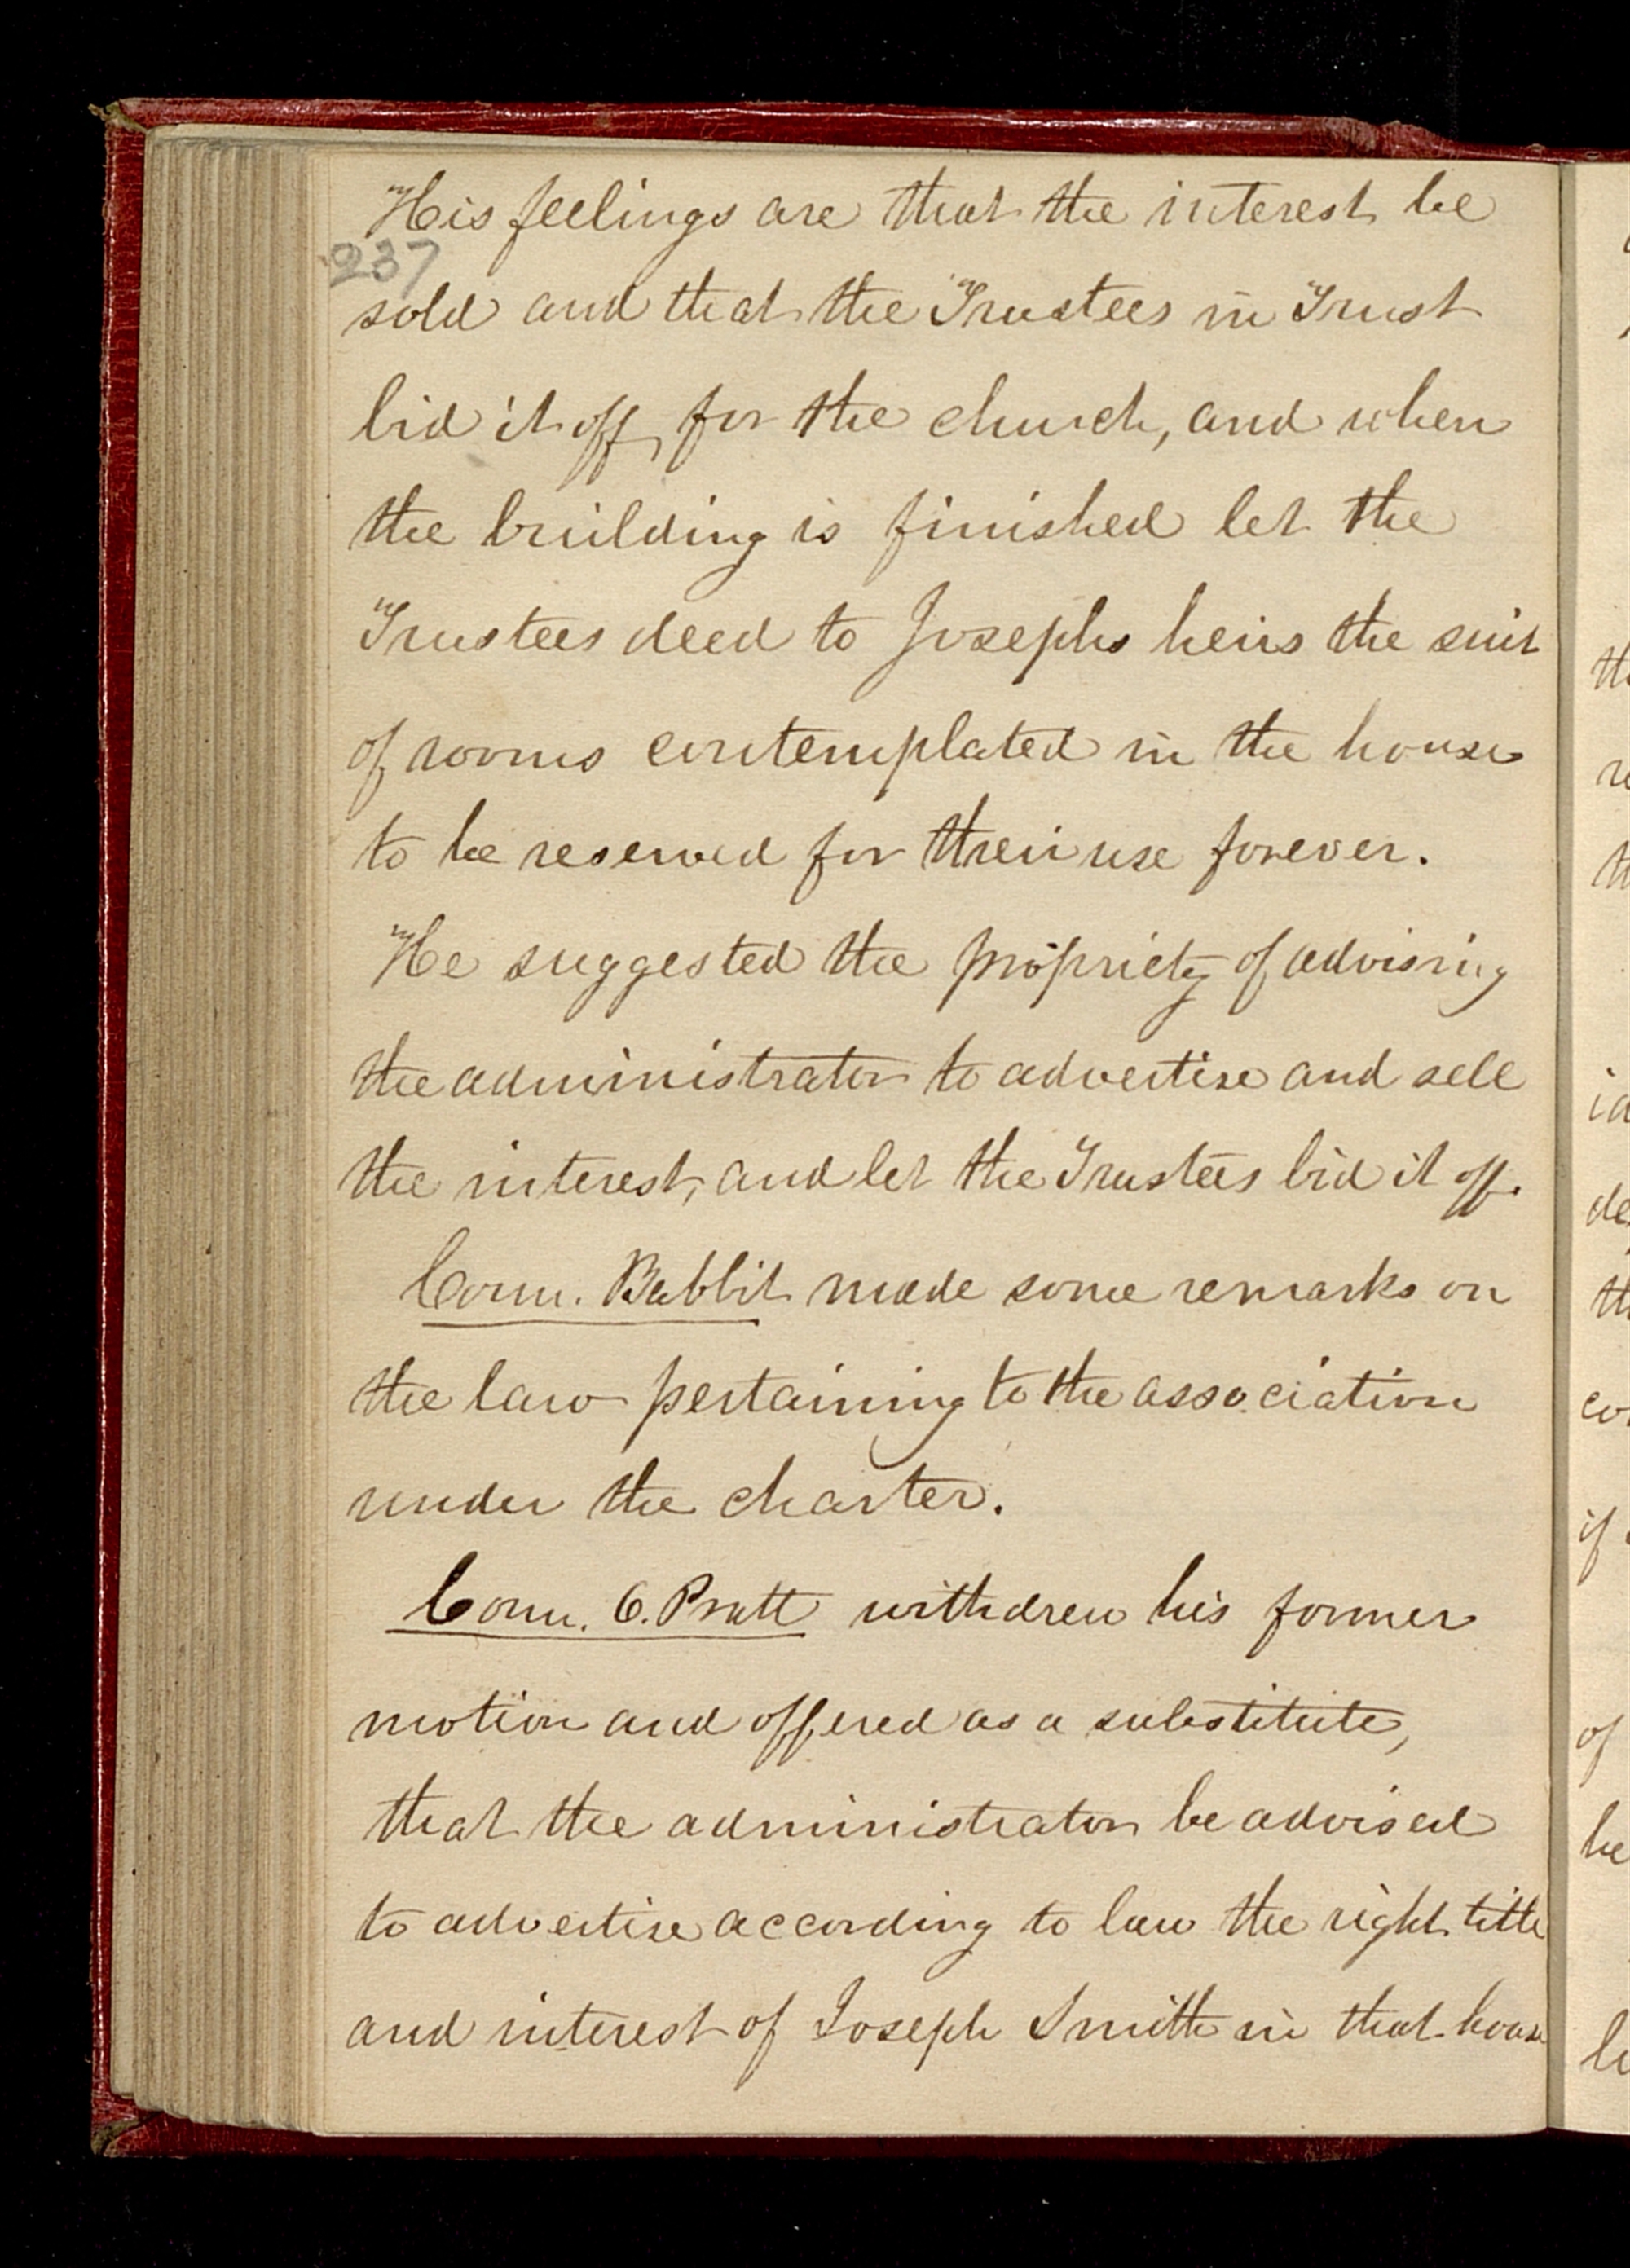 His feelings are that the interest be
237
sold and that the Trustees in Trust
bid it off, for the church, and when
the building is finished let the
Trustees deed to Josephs heirs the suit
of rooms contemplated in the house
to be reserved for their use forever.
He suggested the propriety of advising
the administrator to advertise and sell
the interest, and let the Trustees bid it off.
Coun. Babbit made some remarks on
the law pertaining to the association
under the charter.
Coun. O. Pratt withdrew his former
motion and offered as a substitute,
that the administrator be advised
to advertise according to law the right title
and interest of Joseph Smith in that house